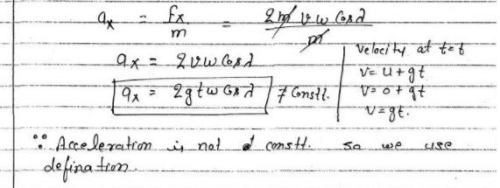 ax = fx/m = 2m v ω Cos λ / m
ax = 2 v ω Cos λ
ax = 2 g t ω Cos λ ≠ Constt.
Velocity at t=t
V = u + gt
V = 0 + gt
V = gt.
∵ Acceleration is not constt. so we use
defination.